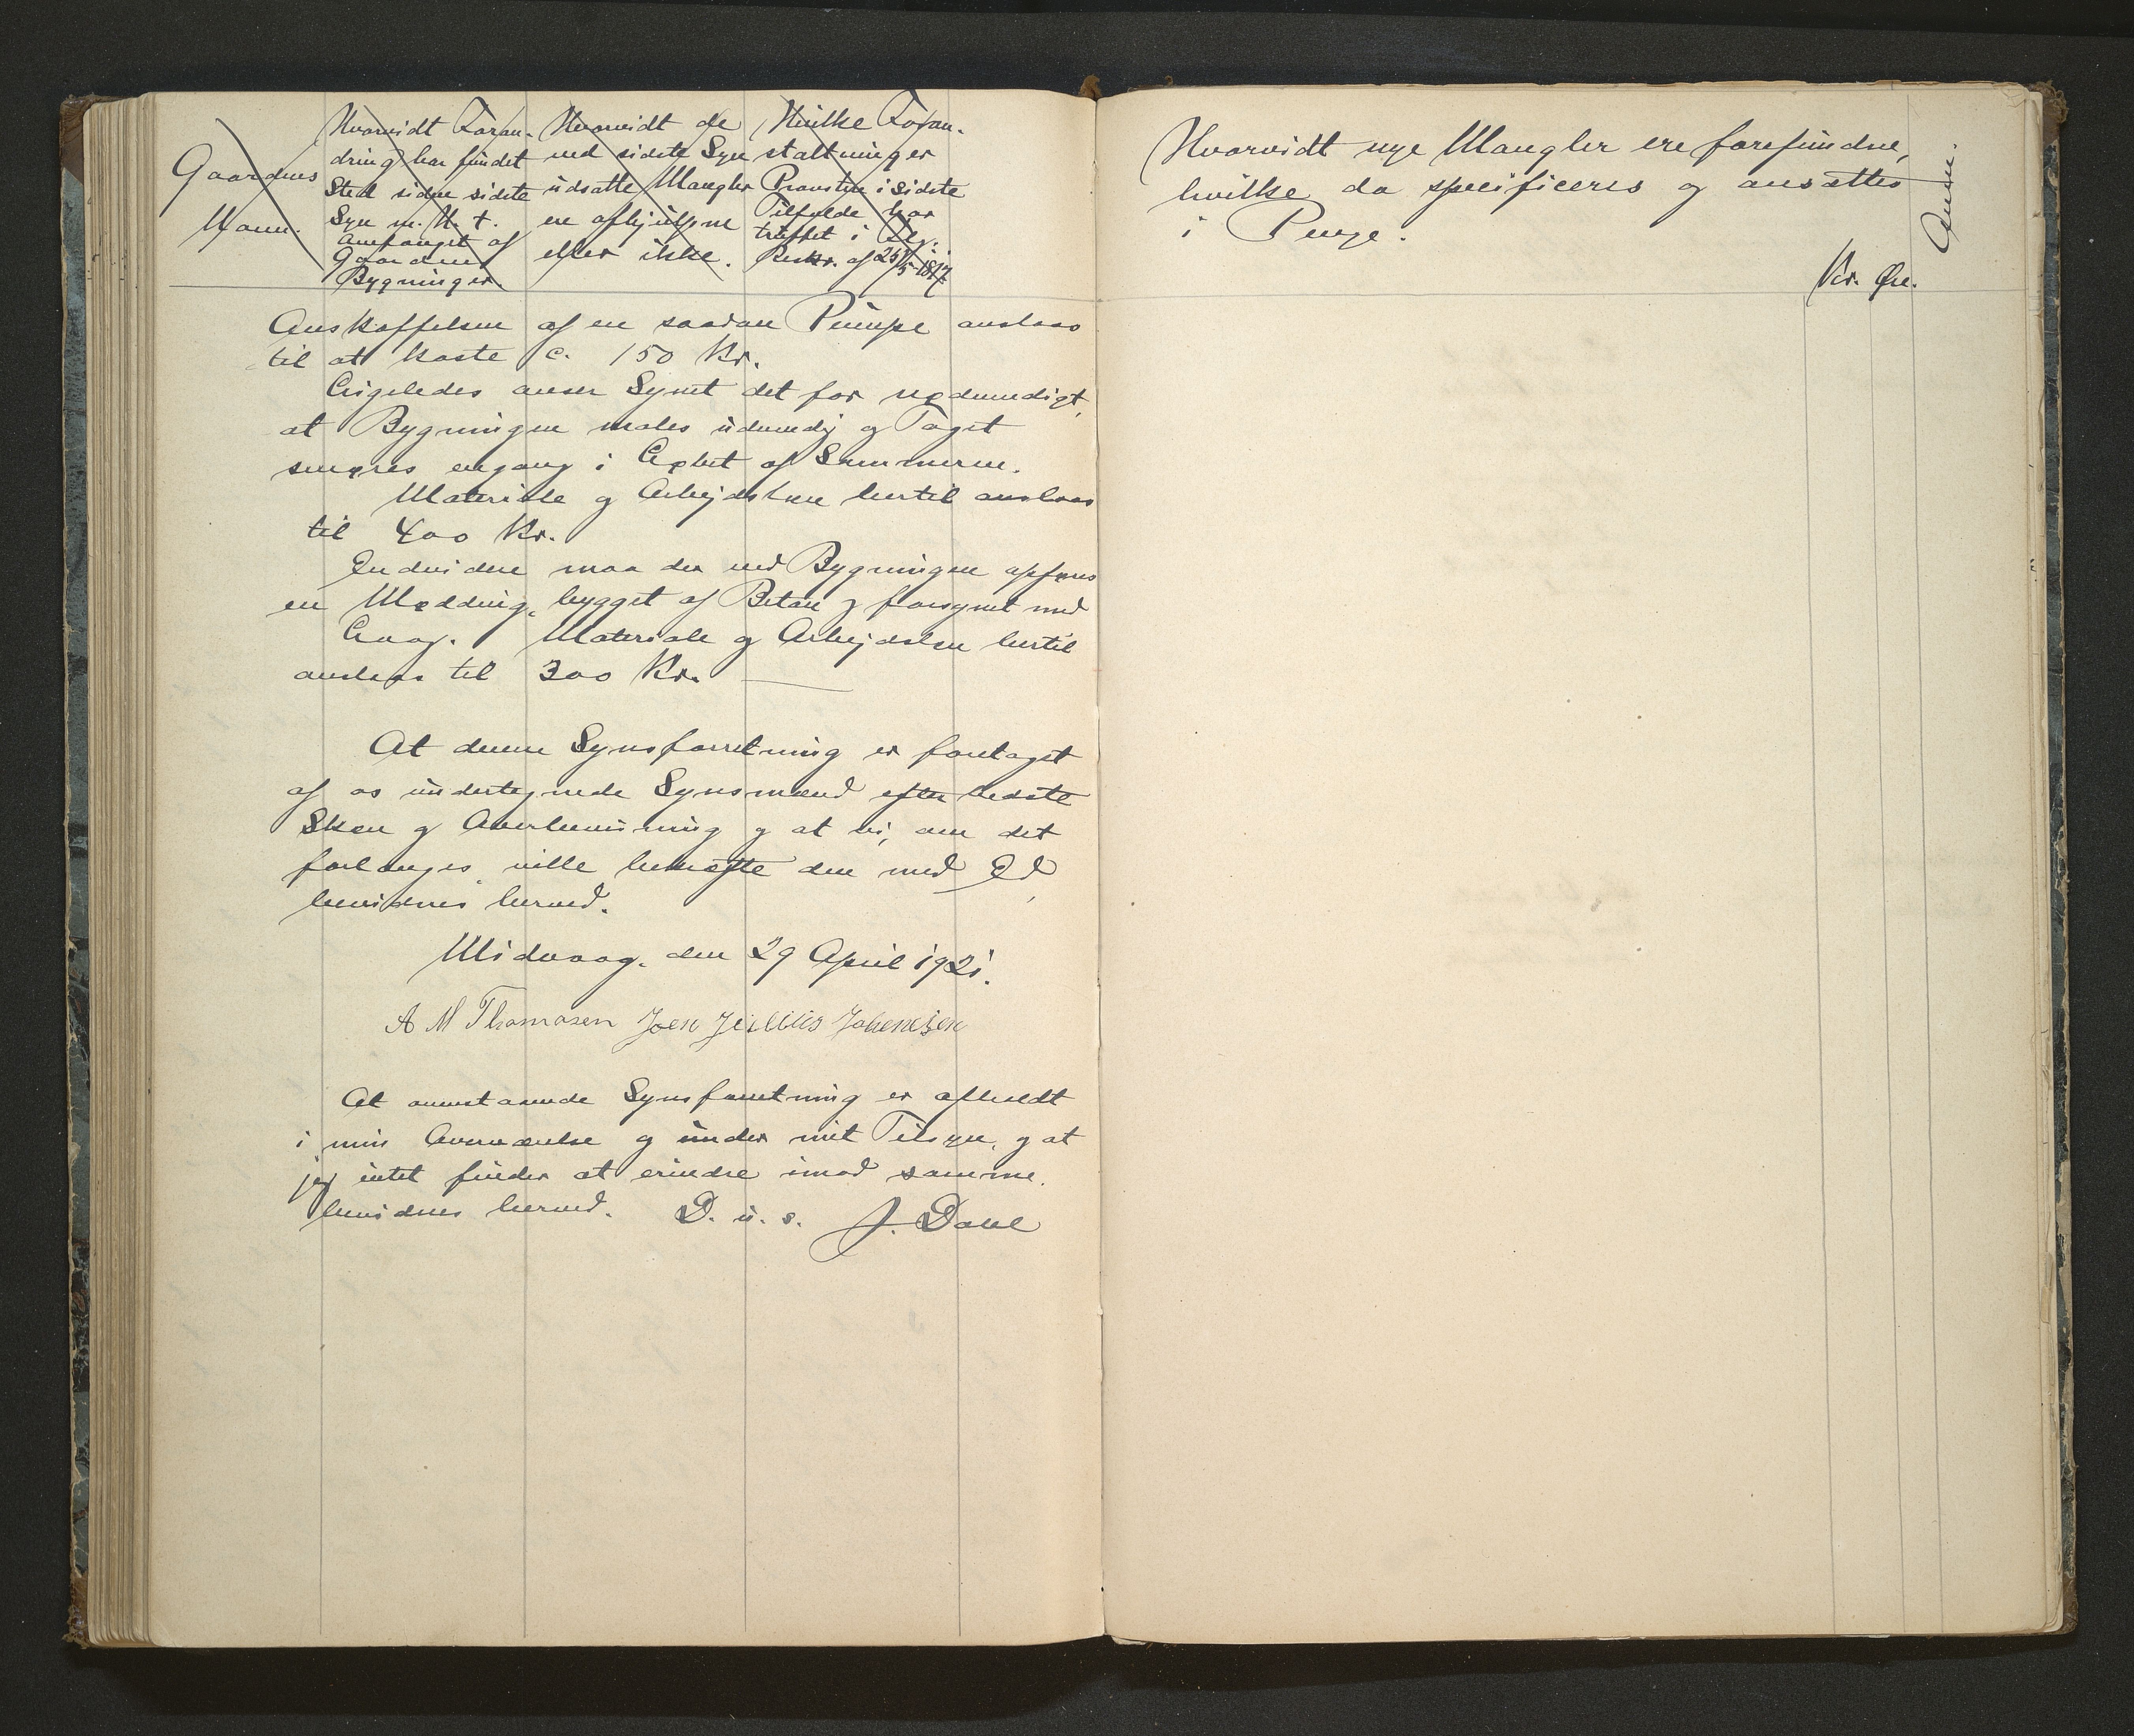 Gaardens
Navn.
Hvorvidt Foran-
dring har fundet
Sted siden sidste
Syn m. H. t.
Omfanget af
Gaardens
Bygninger.
Hvorvidt de
ved sidste Syn
udsatte Mangler
ere afhjulpne
eller ikke.
Hvilke Foran-
staltninger
Provsten i sidste
Tilfælde har
truffet i Flg.
Reskr. af 25/5 1817
Anskaffelsen af en saadan Pumpe anslaas
til at koste c. 150 Kr.
Ligeledes anser Synet det for nødvendigt,
at Bygningen males udvendig og Taget
smøres engang i Løbet af Sommeren.
Materiale og Arbejdsløn hertil anslaas
til 400 Kr.
Endvidere maa der ved Bygningen opføres
en Mødding, bygget af Beton og forsynet med
Laag. Materiale og Arbejdsløn hertil
anslaas til 300 Kr.
At denne Synsforretning er foretaget
af os undertegnede Synsmænd efter bedste
Skøn og Overbevisning og at vi, om det
forlanges, ville bekræfte den med Ed,
bevidnes herved.
Midvaag, den 29 April 1921.
A M Thomasen Joen Julius Johensen
At ovenstaaende Synsforretning er afholdt
i min Overværelse og under mit Tilsyn, og at
jeg intet finder at erindre imod samme,
bevidnes herved. D. u. s. J. Dahl
Hvorvidt nye Mangler ere forefundne,
hvilke da specificeres og ansættes
i Penge.
Kr. Øre.
Anm.